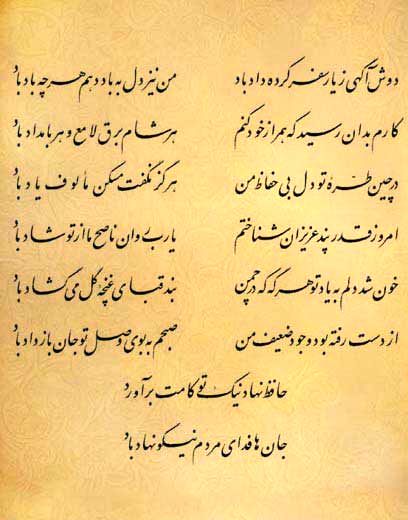 دوش آگهی ز یار سفر کرده داد باد من نیز دل به باد دهم هر چه باد باد
کارم بدان رسید که همراز خود کنم هر شام برق لامع و هر بامداد باد
در چین طرهٔ تو دل بی حفاظ من هرگز نگفت مسکن مألوف یاد باد
امروز قدر پند عزیزان شناختم یا رب روان ناصح ما از تو شاد باد
خون شد دلم به یاد تو هر گه که در چمن بند قبای غنچه گل می‌گشاد باد
از دست رفته بود وجود ضعیف من صبحم به بوی وصل تو جان باز داد باد
حافظ نهاد نیک تو کامت برآورد
جان‌ها فدای مردم نیکو نهاد باد